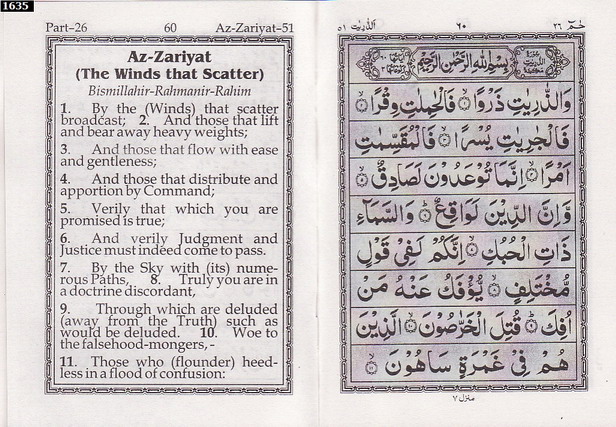 1635
Part-26 60 Az-Zariyat-51
Az-Zariyat
(The Winds that Scatter)
Bismillahir-Rahmanir-Rahim
1. By the (Winds) that scatter
broadcast; 2. And those that lift
and bear away heavy weights;
3. And those that flow with ease
and gentleness;
4. And those that distribute and
apportion by Command;
5. Verily that which you are
promised is true;
6. And verily Judgment and
Justice must indeed come to pass.
7. By the Sky with (its) nume-
rous Paths, 8. Truly you are in
a doctrine discordant,
9. Through which are deluded
(away from the Truth) such as
would be deluded. 10. Woe to
the falsehood-mongers, -
11. Those who (flounder) heed-
less in a flood of confusion:
حٰمٓ ٢٦ ٦٠ الذّٰرِيٰت ٥١
بِسْمِ اللّٰهِ الرَّحْمٰنِ الرَّحِيْمِ
وَالذّٰرِيٰتِ ذَرْوًا ۝ فَالْحٰمِلٰتِ وِقْرًا ۝
فَالْجٰرِيٰتِ يُسْرًا ۝ فَالْمُقَسِّمٰتِ
اَمْرًا ۝ اِنَّمَا تُوْعَدُوْنَ لَصَادِقٌ ۝
وَّاِنَّ الدِّيْنَ لَوَاقِعٌ ۝ وَالسَّمَآءِ
ذَاتِ الْحُبُكِ ۝ اِنَّكُمْ لَفِيْ قَوْلٍ
مُّخْتَلِفٍ ۝ يُّؤْفَكُ عَنْهُ مَنْ
اُفِكَ ۝ قُتِلَ الْخَرّٰصُوْنَ ۝ الَّذِيْنَ
هُمْ فِيْ غَمْرَةٍ سَاهُوْنَ ۝
منزل ٧